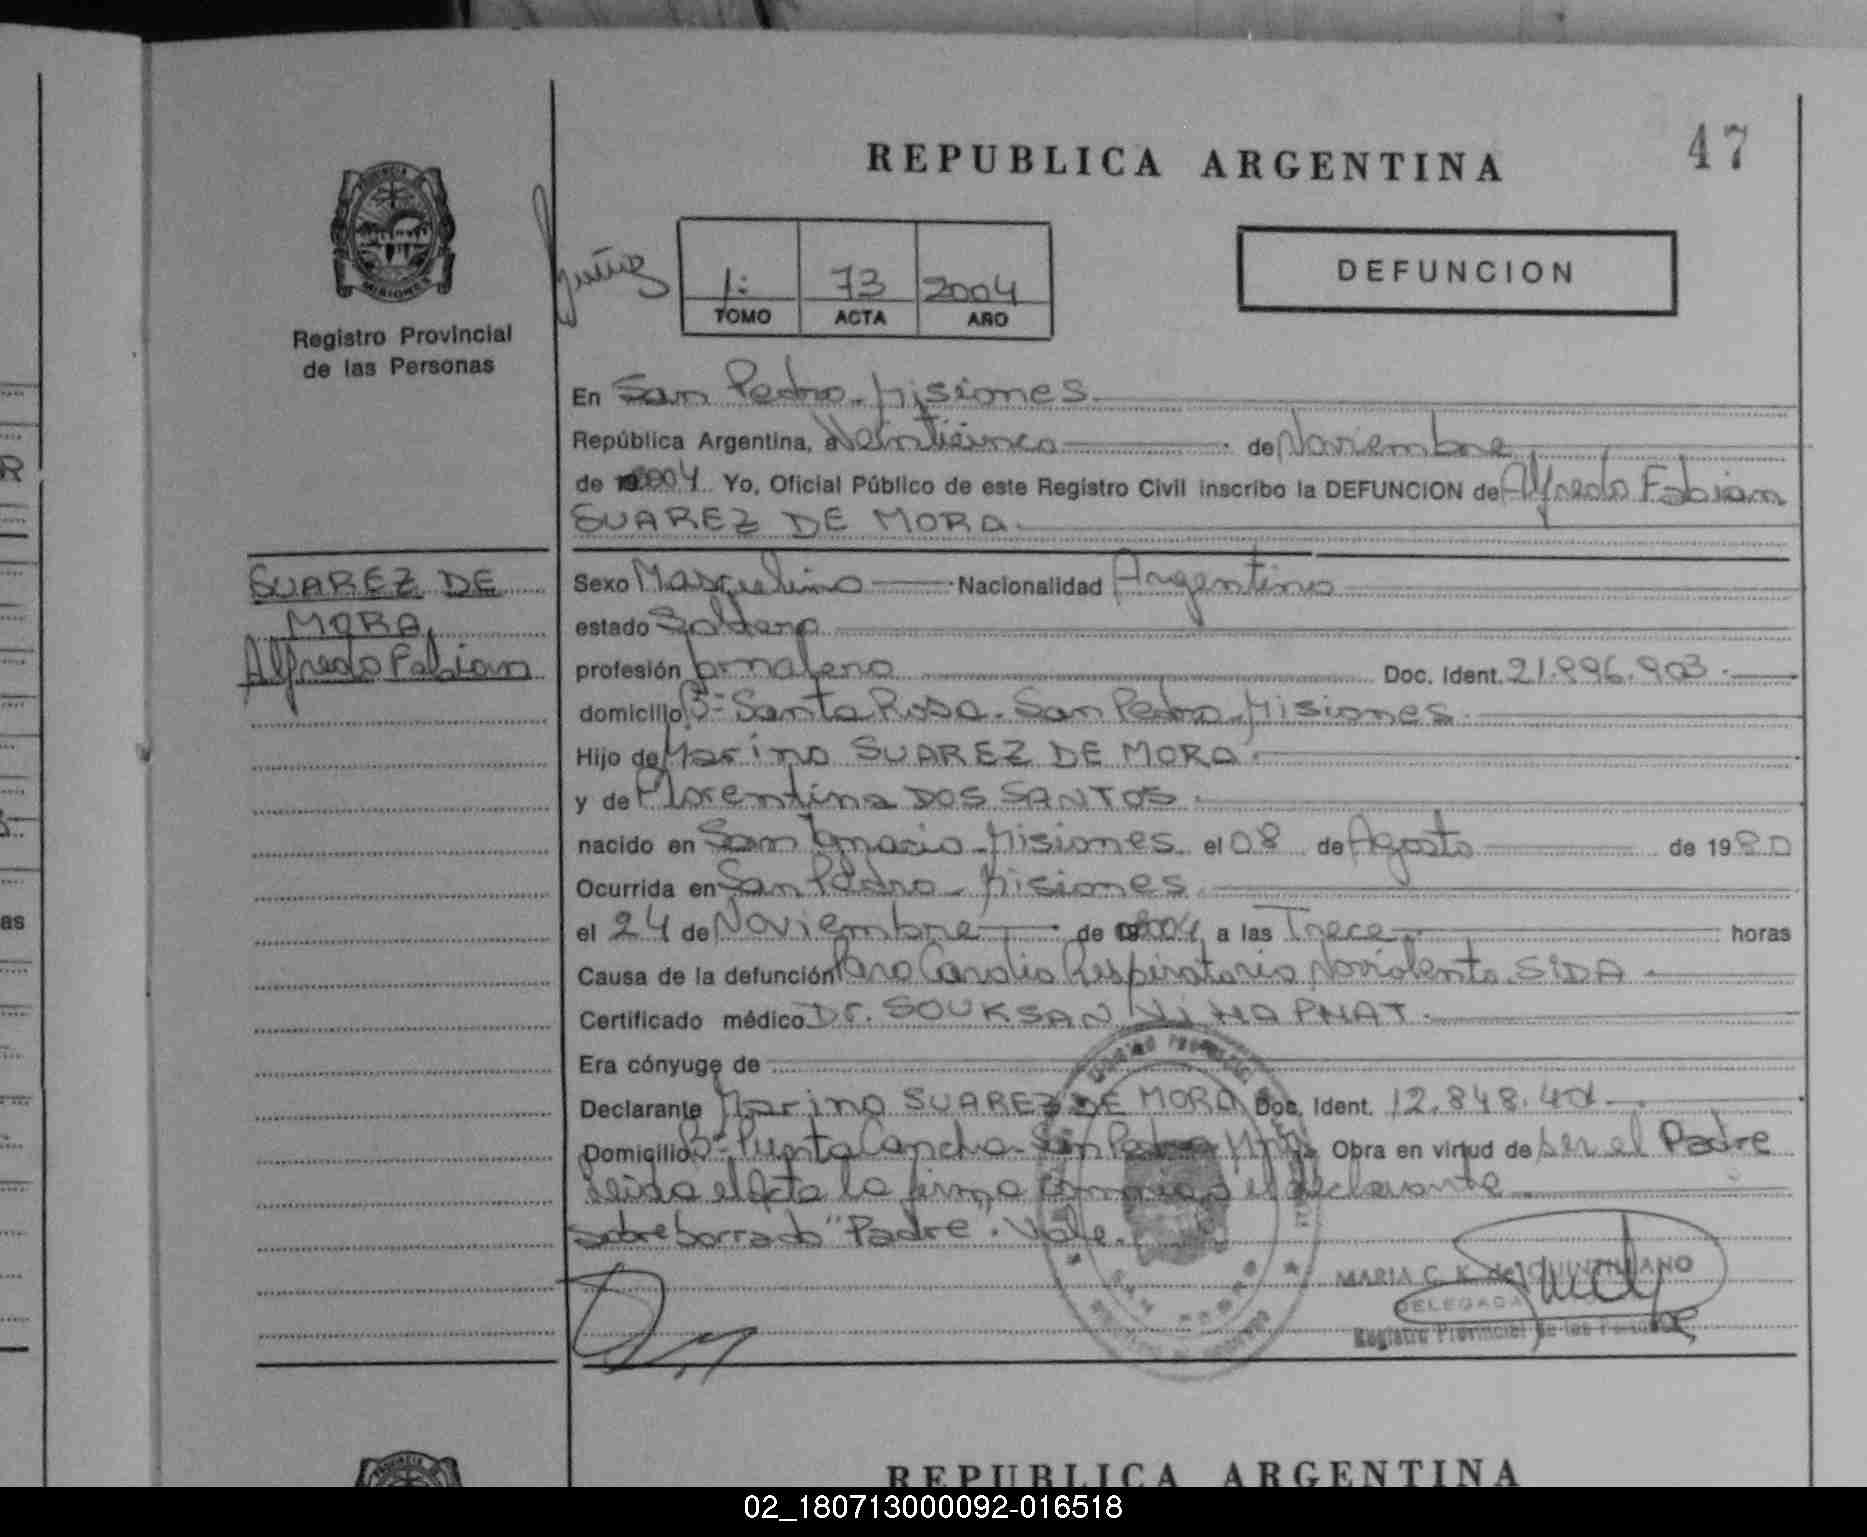 47
REPUBLICA ARGENTINA
1:
73
2004
TOMO
ACTA
AÑO
DEFUNCION
Registro Provincial
de las Personas
En San Pedro - Misiones
República Argentina, a Veinticinco de Noviembre
de 2004 Yo, Oficial Público de este Registro Civil inscribo la DEFUNCION de Alfredo Fabian
SUAREZ DE MORA
SUAREZ DE
MORA,
Alfredo Fabian
Sexo Masculino Nacionalidad Argentino
estado Soltero
profesión Jornalero Doc. Ident. 21.996.903
domicilio B- Santa Rosa - San Pedro - Misiones
Hijo de Marino SUAREZ DE MORA
y de Florentina DOS SANTOS
nacido en San Ignacio - Misiones el 08 de Agosto de 1980
Ocurrida en San Pedro - Misiones
el 24 de Noviembre de 2004 a las Trece horas
Causa de la defunción Paro Cardio Respiratorio No violento SIDA
Certificado médico Dr. SOUKSAN
Era cónyuge de
Declarante Marino SUAREZ DE MORA Doc. Ident. 12.848.
Domicilio B- Puerta Cancha - San Pedro Obra en virtud de ser el Padre
Leida el Acta la firma conmigo el declarante
sobreborrado "Padre". Vale.
MARIA C. K. de QUINTILIANO
DELEGADA
Registro Provincial de las Personas
REPUBLICA ARGENTINA
02_180713000092-016518